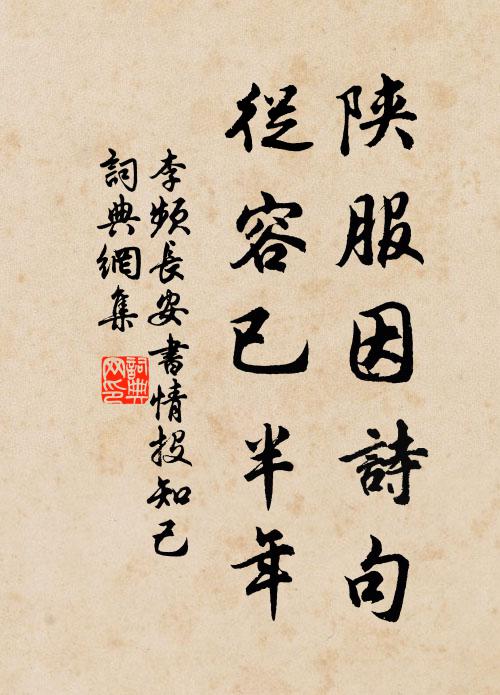 陝服因詩句
從容已半年
李頻長安書情投知己
詞典網集
詞典网印